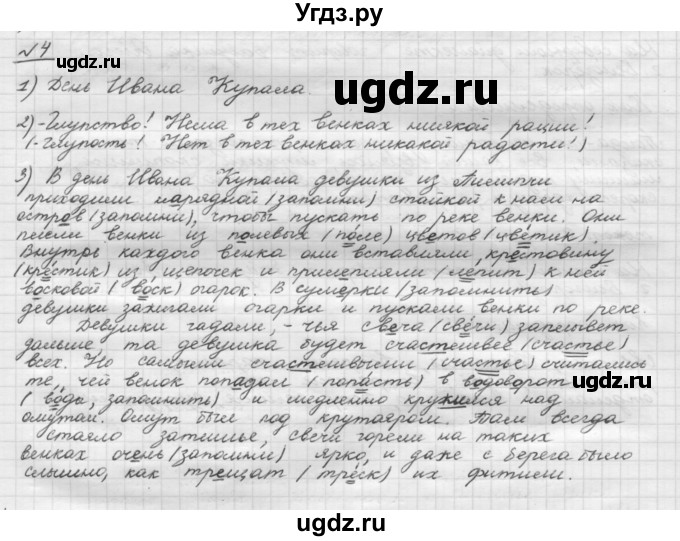 Угдз.ру
№4
1) День Ивана Купала.
2) -Глупство! Нема в тех венках ниякой рации!
(-Глупость! Нет в тех венках никакой радости!)
3) В день Ивана Купала девушки из
приходили нарядной (запомни) стайкой к нам на
остров (запомни), чтобы пускать по реке венки. Они
плели венки из полевых (поле) цветов (цветик).
Внутрь каждого венка они вставляли крестовину
(крестик) из щепочек и прилепляли (лепит) к ней
восковой (воск) огарок. В сумерки (запомнить)
девушки зажигали огарки и пускали венки по реке.
Девушки гадали, - чья свеча (свечи) заплывет
дальше та девушка будет счастливее (счастье)
всех. Но самыми счастливыми (счастье) считались
те, чей венок попадал (попасть) в водоворот
(воды, запомнить) и медленно кружился над
омутом. Омут был под крутояром. Там всегда
стояло затишье, свечи горели на таких
венках очень (запомни) ярко, и даже с берега было
слышно, как трещат (треск) их фитили.
ugdz.ru
ugdz.ru
ugdz.ru
ugdz.ru
ugdz.ru
ugdz.ru
ugdz.ru